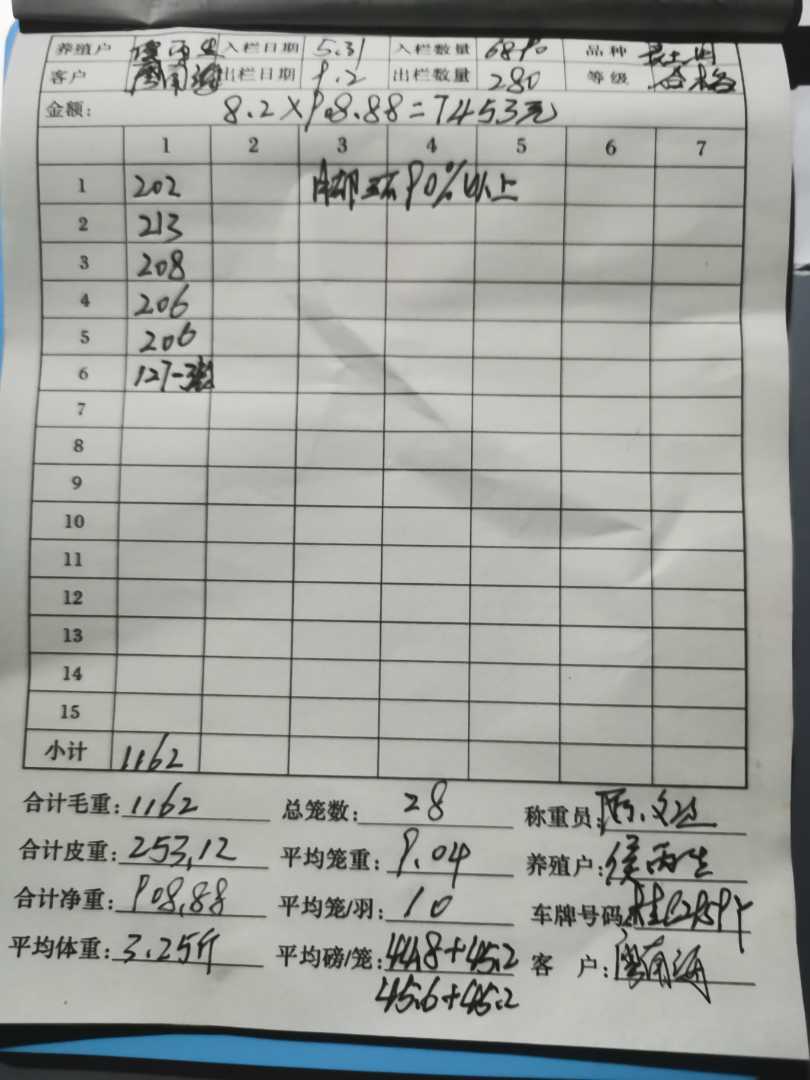 养殖户 侯丙生 入栏日期 5.31 入栏数量 6890 品种
客户 出栏日期 9.2 出栏数量 280 等级 合格
金额: 8.2×908.88=7453元
1 2 3 4 5 6 7
1 202 90%以上
2 213
3 208
4 206
5 206
6 127-3
7
8
9
10
11
12
13
14
15
小计 1162
合计毛重: 1162 总笼数: 28 称重员:
合计皮重: 253,12 平均笼重: 9.04 养殖户: 侯丙生
合计净重: 908,88 平均笼/羽: 10 车牌号码:
平均体重: 3.25斤 平均磅/笼: 44.8+45.2 客户:
45.6+45.2